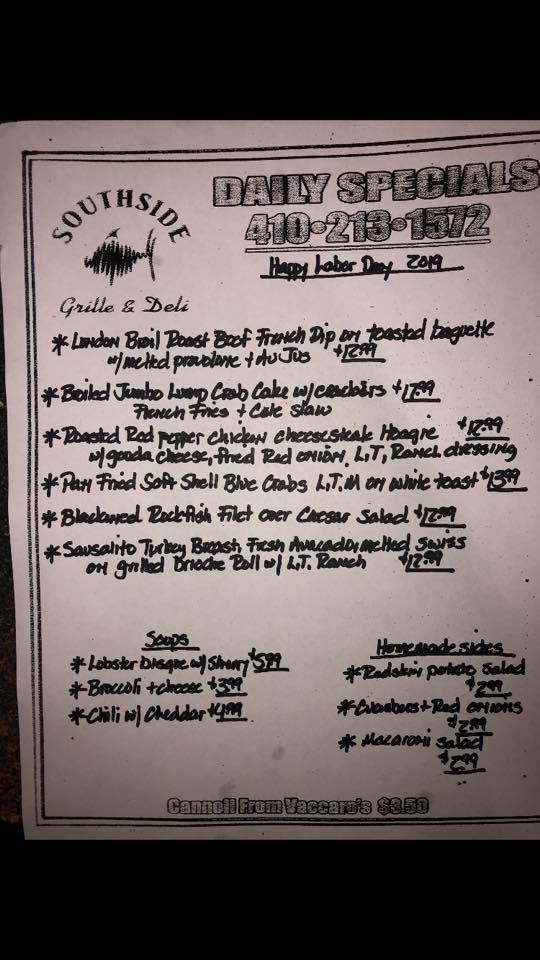 SOUTHSIDE
Grille & Deli
DAILY SPECIALS
410•213•1572
Happy Labor Day 2019
* London Broil Roast Beef French Dip on toasted baguette
w/melted provolone + Au Jus $12.99
* Broiled Jumbo Lump Crab Cake w/crackers $17.99
French Fries + Cole Slaw
* Roasted Red pepper chicken cheesesteak Hoagie $12.99
w/gouda cheese, fried Red onion, L,T, Ranch dressing
* Pan Fried Soft Shell Blue Crabs L.T.M on white toast $13.99
* Blackened Rockfish Filet over Caesar Salad $12.99
* Sausalito Turkey Breast, Fresh Avocado, melted Swiss
on grilled Brioche Roll w/ L.T. Ranch $12.99
Soups
* Lobster Bisque w/Sherry $5.99
* Broccoli + cheese $3.99
* Chili w/ Cheddar $4.99
Homemade sides
* Redskin potato salad
$2.99
* Cucumbers + Red onions
$2.99
* Macaroni salad
$2.99
Cannoli From Vaccaro's $3.50